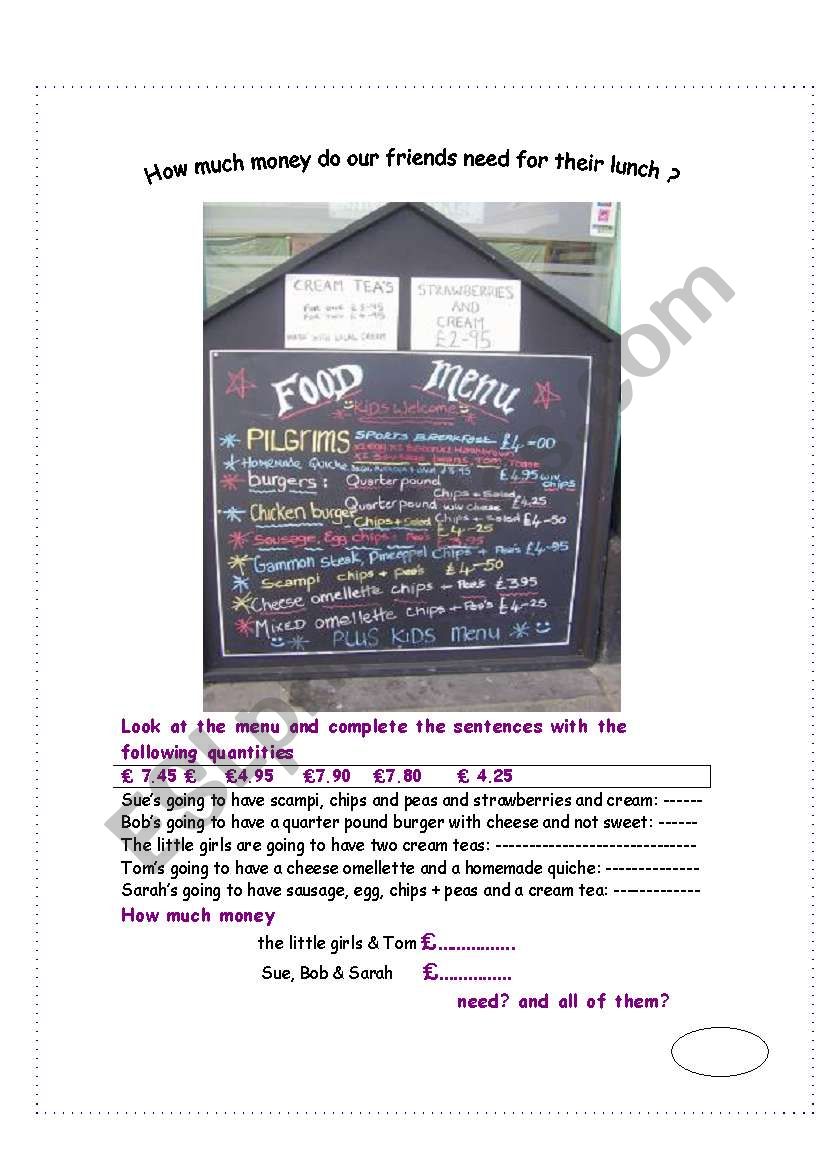 How much money do our friends need for their lunch ?
CREAM TEA'S
FOR ONE £3-95
FOR TWO
MADE WITH LOCAL CREAM
STRAWBERRIES
AND
CREAM
£2-95
FOOD MENU
KIDS Welcome
PILGRIMS SPORTS BREAKFAST £4-00
HOMEMADE QUICHE £4.95 WIV CHIPS
burgers: Quarter pound Chips + Salad
Quarter pound WIV cheese £4.25
Chicken burger Chips + Salad £4-50
Chips + Salad £4-25
Sausage, Egg chips + Pea's £3.95
Gammon Steak, Pineappel chips + Pea's £4-95
Scampi chips + pea's £4-50
Cheese omellette chips + Pea's £3.95
Mixed omellette chips + Pea's £4-25
PLUS KIDS Menu
Look at the menu and complete the sentences with the
following quantities
£ 7.45 £ £4.95 £7.90 £7.80 £ 4.25
Sue's going to have scampi, chips and peas and strawberries and cream: ------
Bob's going to have a quarter pound burger with cheese and not sweet: ------
The little girls are going to have two cream teas: ------------------------------
Tom's going to have a cheese omellette and a homemade quiche: --------------
Sarah's going to have sausage, egg, chips + peas and a cream tea: -------------
How much money
the little girls & Tom £……………
Sue, Bob & Sarah £……………
need? and all of them?
ESLprintables.com